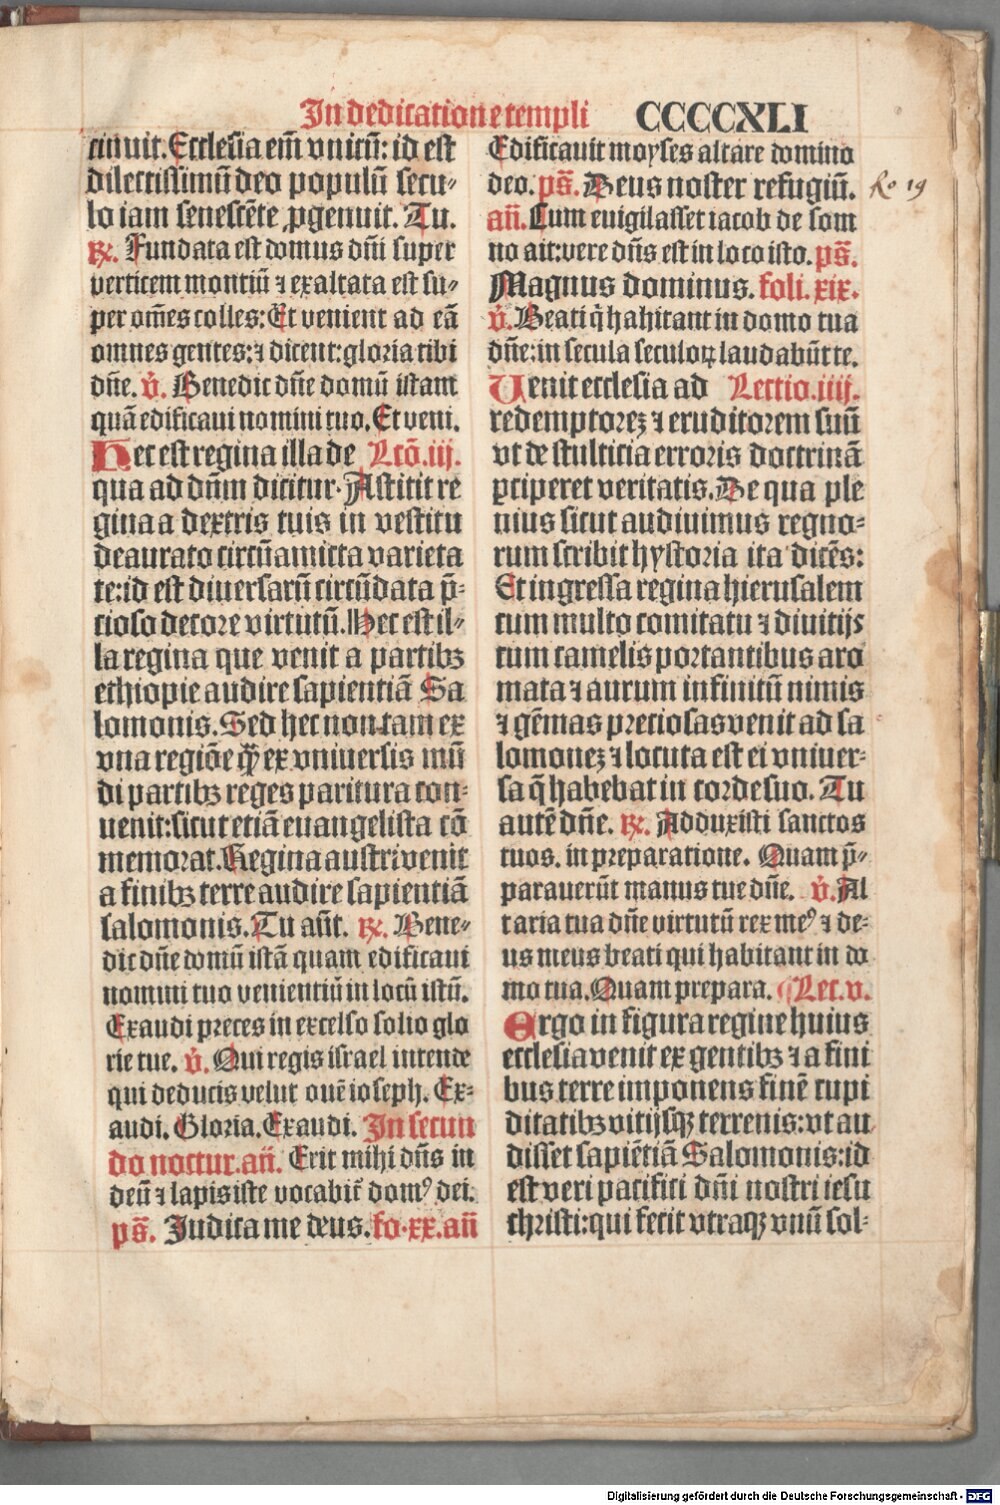 In dedicatione templi CCCCXLI
cinuit. Ecclesia em̄ vnicū: id est
dilectissimū deo populū secu⸗
lo iam senescēte ꝓgenuit. Tu.
℞. Fundata est domus dn̄i super
verticem montiū ⁊ exaltata est su⸗
per om̄es colles: Et venient ad eā
omnes gentes: ⁊ dicent: gloria tibi
dn̄e. v̓. Benedic dn̄e domū istam
quā edificaui nomini tuo. Et veni.
Hec est regina illa de Lcō. iij.
qua ad dn̄m dicitur. Astitit re
gina a dextris tuis in vestitu
deaurato circūamicta varieta
te: id est diuersarū circūdata p̄⸗
cioso decore virtutū. Hec est il⸗
la regina que venit a partibꝫ
ethiopie audire sapientiā Sa
lomonis. Sed hec non tam ex
vna regiōe q̄ꝫ ex vniuersis mū
di partibꝫ reges paritura con⸗
uenit: sicut etiā euangelista cō
memorat. Regina austri venit
a finibꝫ terre audire sapientiā
salomonis. Tu aūt. ℞. Bene⸗
dic dn̄e domū istā quam edificaui
nomini tuo venientiū in locū istū.
Exaudi preces in excelso solio glo
rie tue. v̓. Qui regis israel intende
qui deducis velut ouē ioseph. Ex⸗
audi. Gloria. Exaudi. In secun
do noctur. an̄. Erit mihi dn̄s in
deū ⁊ lapis iste vocabit᷑ domꝰ dei.
ps̄. Iudica me deus. fo. xx. an̄
Edificauit moyses altare domino
deo. ps̄. Deus noster refugiū.
Ro 19
an̄. Cum euigilasset iacob de som
no ait: vere dn̄s est in loco isto. ps̄.
Magnus dominus. foli. xix.
v̓. Beati q̄ habitant in domo tua
dn̄e: in secula seculoꝝ laudabūt te.
Uenit ecclesia ad Lectio. iiij.
redemptoreꝫ ⁊ eruditorem suū
vt de stulticia erroris doctrinā
ꝑciperet veritatis. De qua ple
nius sicut audiuimus regno⸗
rum scribit hystoria ita dicēs:
Et ingressa regina hierusalem
cum multo comitatu ⁊ diuitijs
cum camelis portantibus aro
mata ⁊ aurum infinitū nimis
⁊ gēmas preciosas venit ad sa
lomoneꝫ ⁊ locuta est ei vniuer⸗
sa q̄ habebat in corde suo. Tu
autē dn̄e. ℞. Adduxisti sanctos
tuos. in preparatione. Quam p̄⸗
parauerūt manus tue dn̄e. v̓. Al
taria tua dn̄e virtutū rex meꝰ ⁊ de⸗
us meus beati qui habitant in do
mo tua. Quam prepara. ¶ Lec. v.
Ergo in figura regine huius
ecclesia venit ex gentibꝫ ⁊ a fini
bus terre imponens finē cupi
ditatibꝫ vitijsqꝫ terrenis: vt au
disset sapiētiā Salomonis: id
est veri pacifici dn̄i nostri iesu
christi: qui fecit vtraqꝫ vnū sol⸗
Digitalisierung gefördert durch die Deutsche Forschungsgemeinschaft - DFG